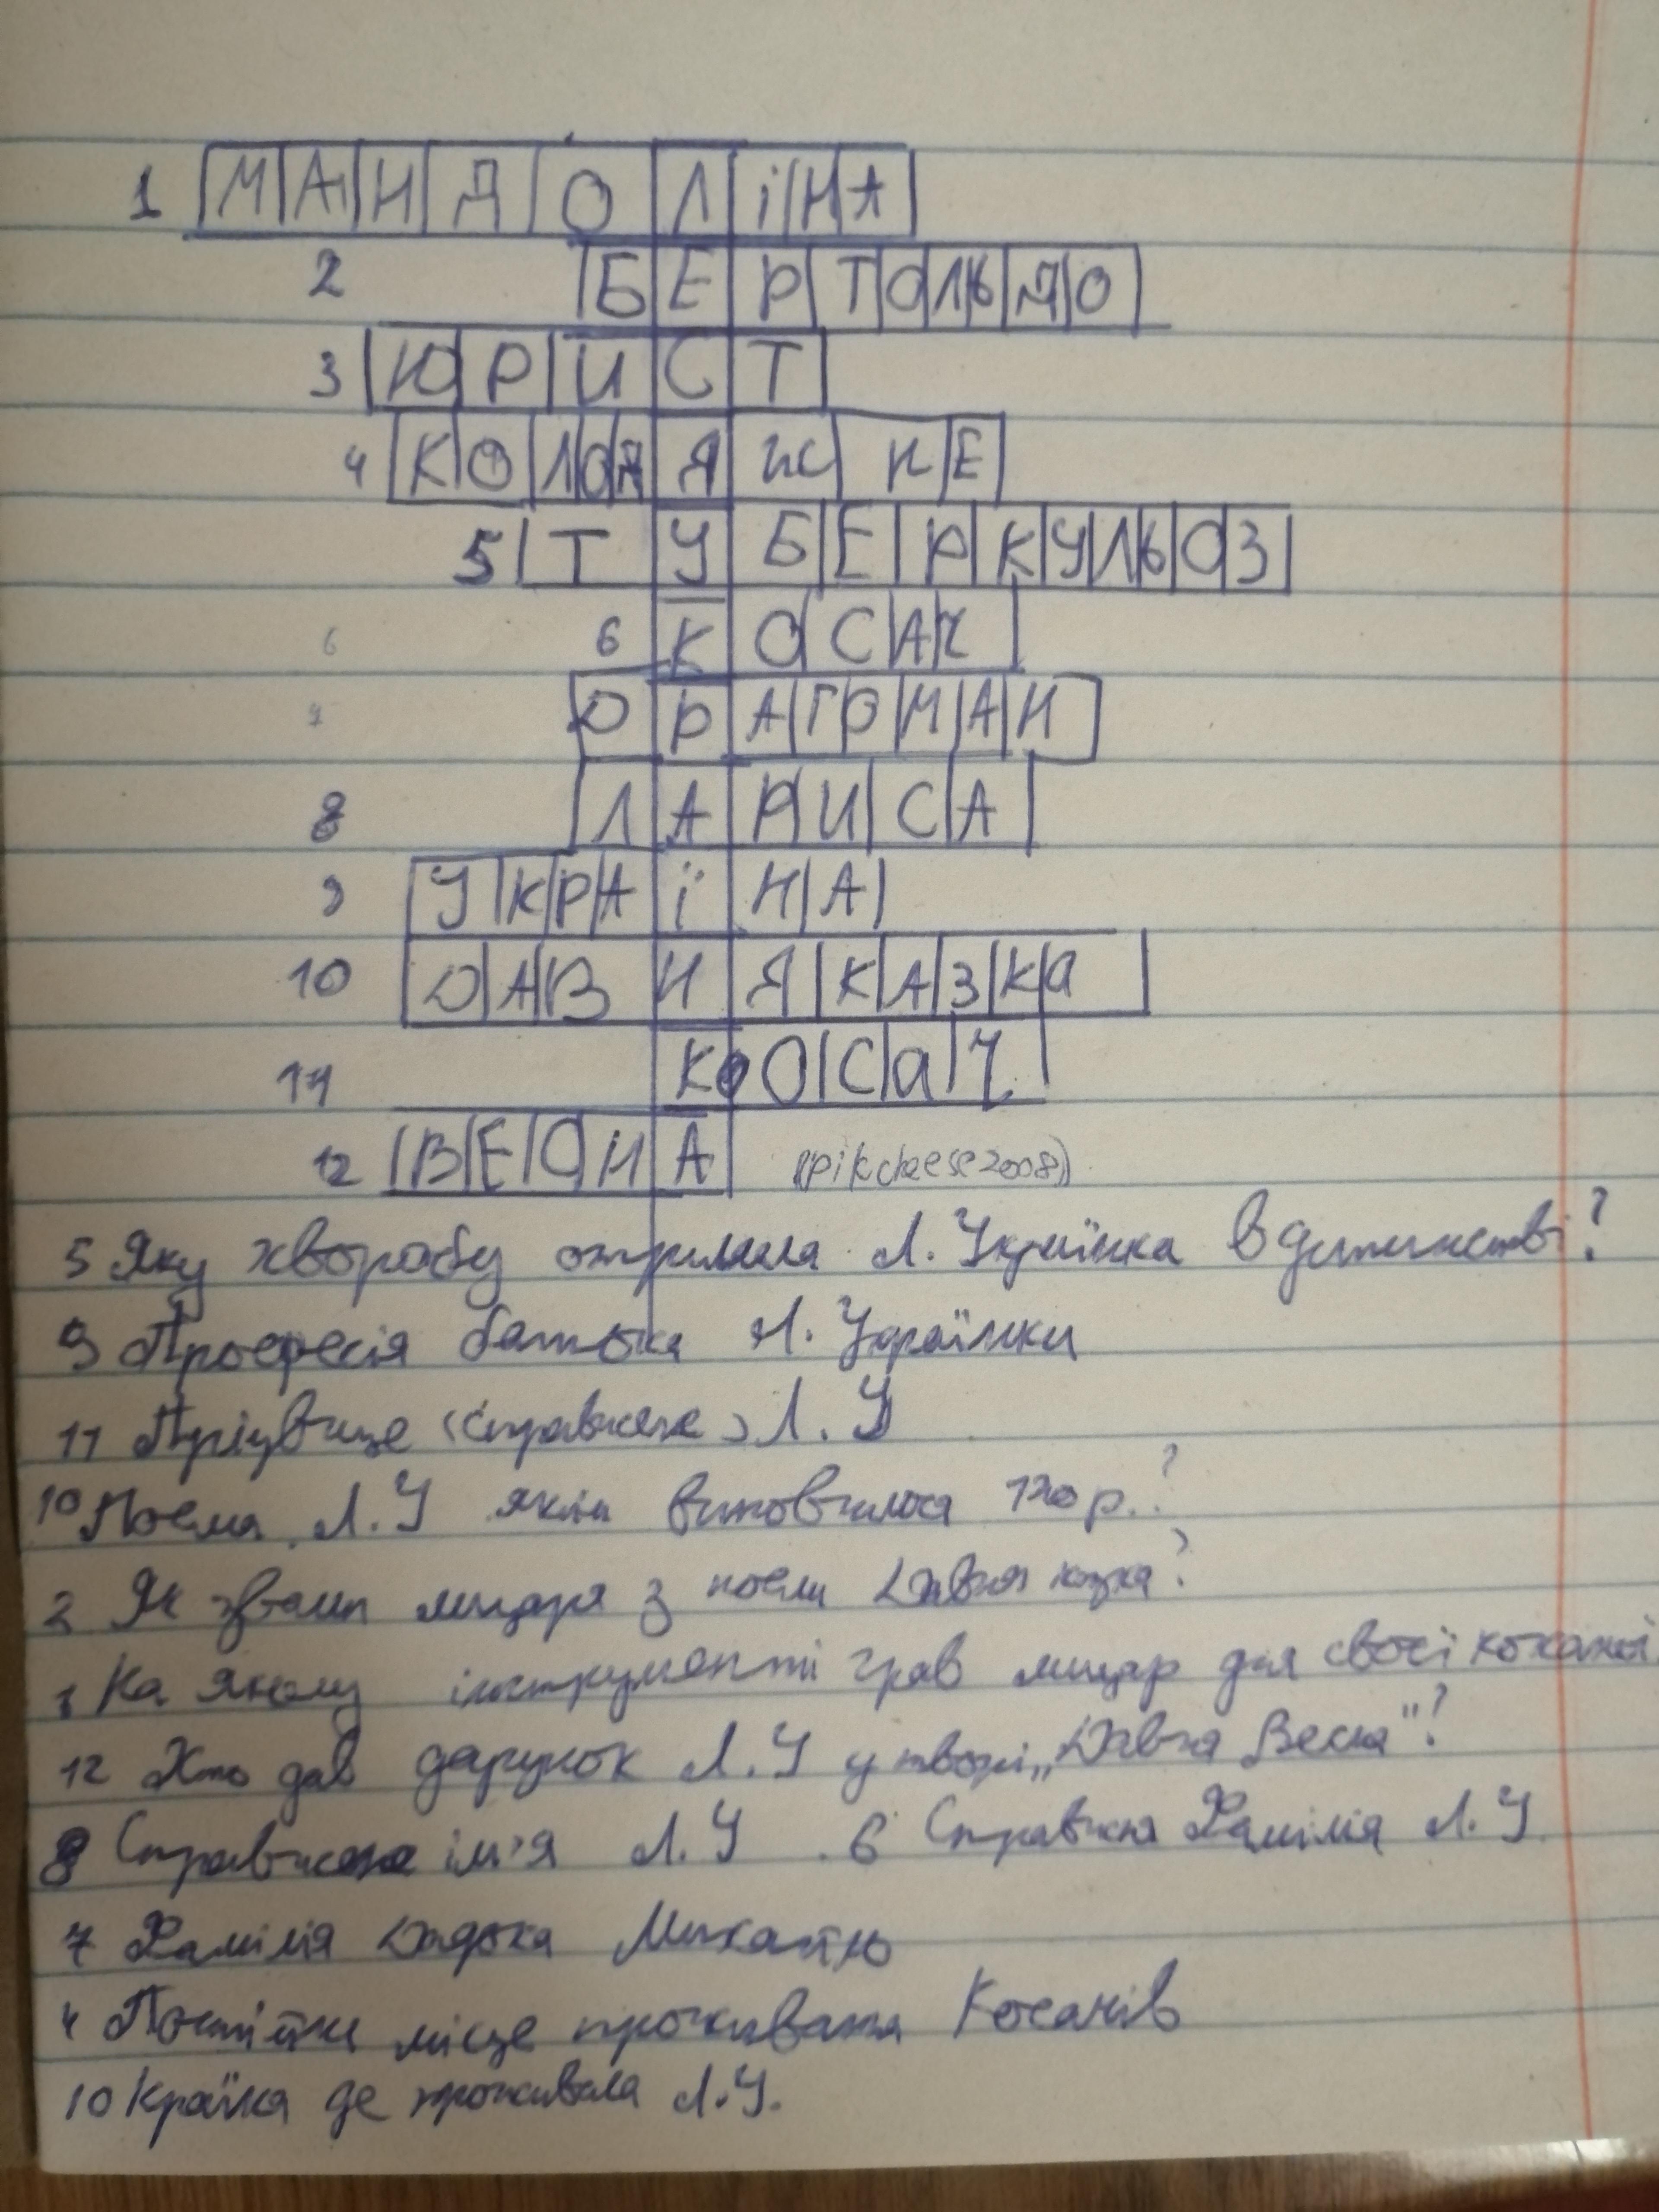 1 МАНДОЛІНА
2 БЕРТОЛЬДО
3 ЮРИСТ
4 КОЛОДЯЖНЕ
5 ТУБЕРКУЛЬОЗ
6 6 КОСАЧ
7 DРАГОМАН
8 ЛАРИСА
9 УКРАЇНА
10 DАВНЯ КАЗКа
11 КОСаЧ
12 ВЕСНА (pikcheese2008)
5 Яку хворобу отримала Л. Українка в дитинстві?
9 Професія батька Л. Українки
11 Прізвище (справжнє) Л. У
10 Поема Л. У якій виповнилося 120 р.?
2 Як звали лицаря з поеми Давня казка?
1 На якому інструменті грав лицар для своєї коханої
12 Хто дав дарунок Л. У у творі „Давня Весна"?
8 Справжнє ім'я Л. У . 6 Справжня Фамілія Л. У
7 Фамілія Дядька Михайло
4 Постійне місце проживання Косачів
10 Країна де проживала Л. У.